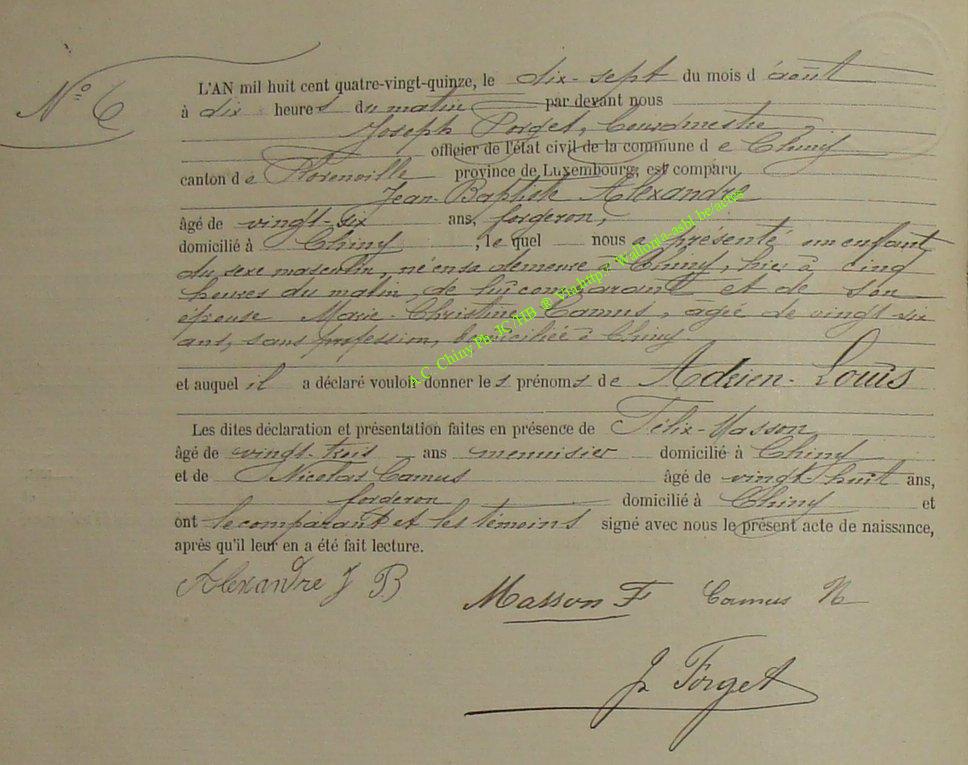 N° 6
L'AN mil huit cent quatre-vingt-quinze, le dix-sept du mois d'août
à dix heures du matin par devant nous
Joseph Forget, Bourgmestre,
officier de l'état civil de la commune de Chiny
canton de Florenville province de Luxembourg, est comparu
Jean-Baptiste Alexandre
âgé de vingt-six ans, forgeron,
domicilié à Chiny, lequel nous a présenté un enfant
du sexe masculin, né en sa demeure à Chiny, hier à cinq
heures du matin, de lui comparant et de son
épouse Marie-Christine Camus, âgée de vingt-six
ans, sans profession, domiciliée à Chiny.
et auquel il a déclaré vouloir donner les prénoms de Adrien-Louis
Les dites déclaration et présentation faites en présence de Félix Masson
âgé de vingt-trois ans menuisier domicilié à Chiny
et de Nicolas Camus âgé de vingt-huit ans,
forgeron domicilié à Chiny et
ont le comparant et les témoins signé avec nous le présent acte de naissance,
après qu'il leur en a été fait lecture.
Alexandre J B
Masson F Camus N
J. Forget
A.C. Chiny Ph. JC/HB ® Via http:// Wallonia-asbl.be/actes